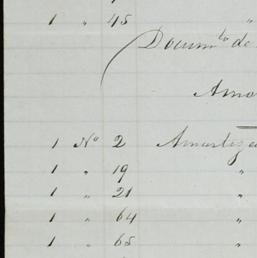 1 " 45 "
Docum.to de
Amo
1 No 2 Amortiza
1 " 19 "
1 " 21 "
1 " 64 "
1 " 65 "